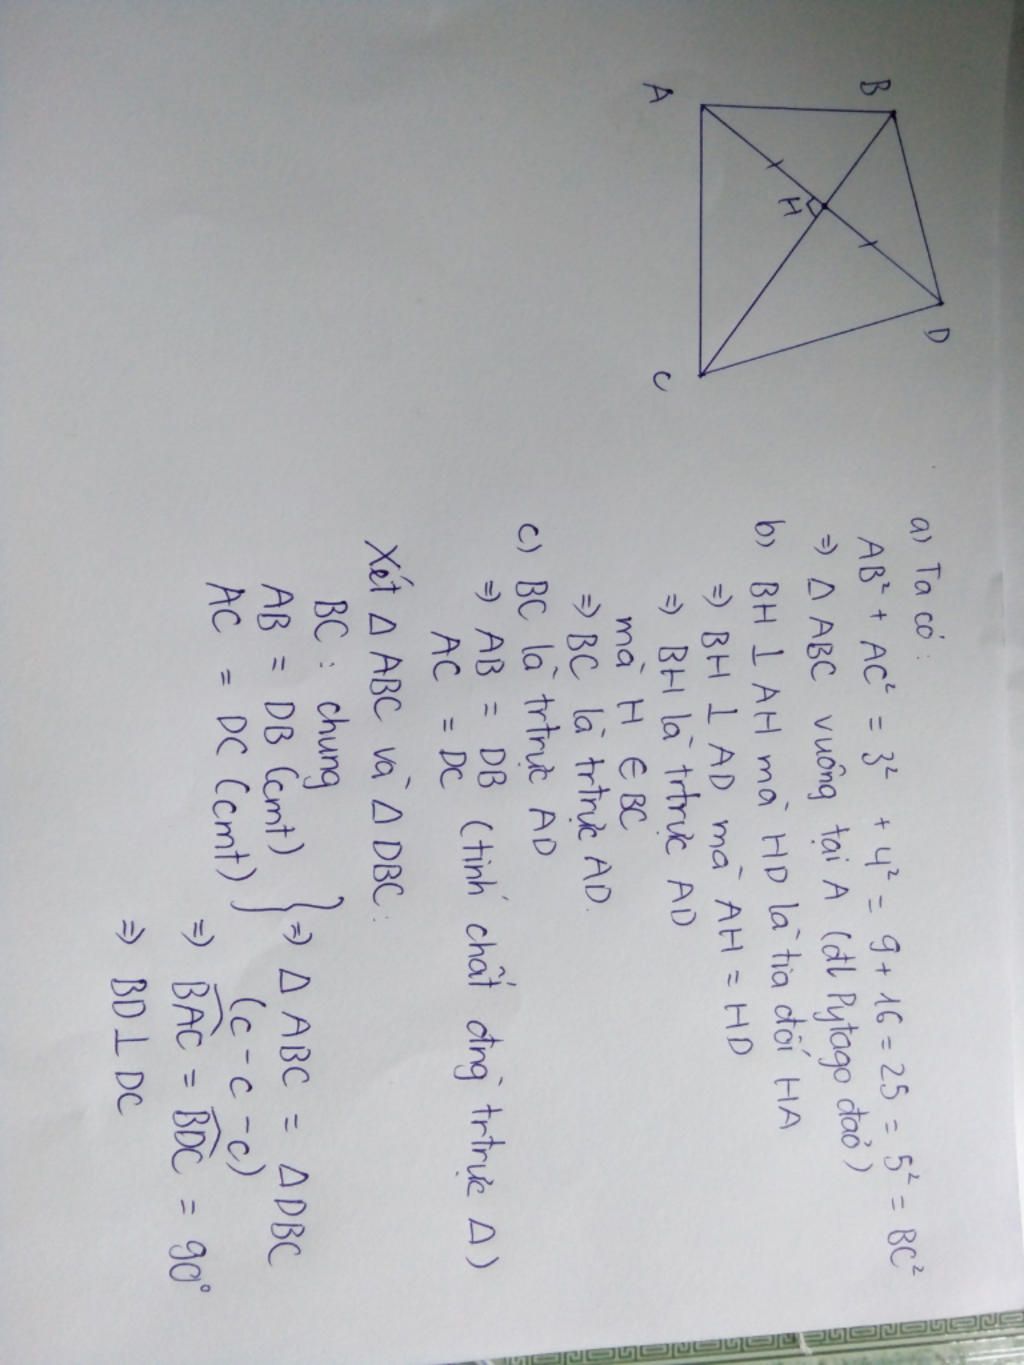 B
D
A
H
C
a) Ta có:
AB² + AC² = 3² + 4² = 9 + 16 = 25 = 5² = BC²
⇒ Δ ABC vuông tại A (đl Pytago đảo)
b) BH ⊥ AH mà HD là tia đối HA
⇒ BH ⊥ AD mà AH = HD
⇒ BH là trtrực AD
mà H ∈ BC
⇒ BC là trtrực AD.
c) BC là trtrực AD
⇒ AB = DB (tính chất đng trtrực Δ)
AC = DC
Xét Δ ABC và Δ DBC:
BC : chung
AB = DB (cmt) } ⇒ Δ ABC = Δ DBC
AC = DC (cmt) (c - c - c)
⇒ BAC = BDC = 90°
⇒ BD ⊥ DC